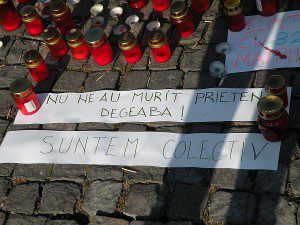 NU NE-AU MURIT PRIETENI
DEGEABA!
SUNTEM COLECTIV